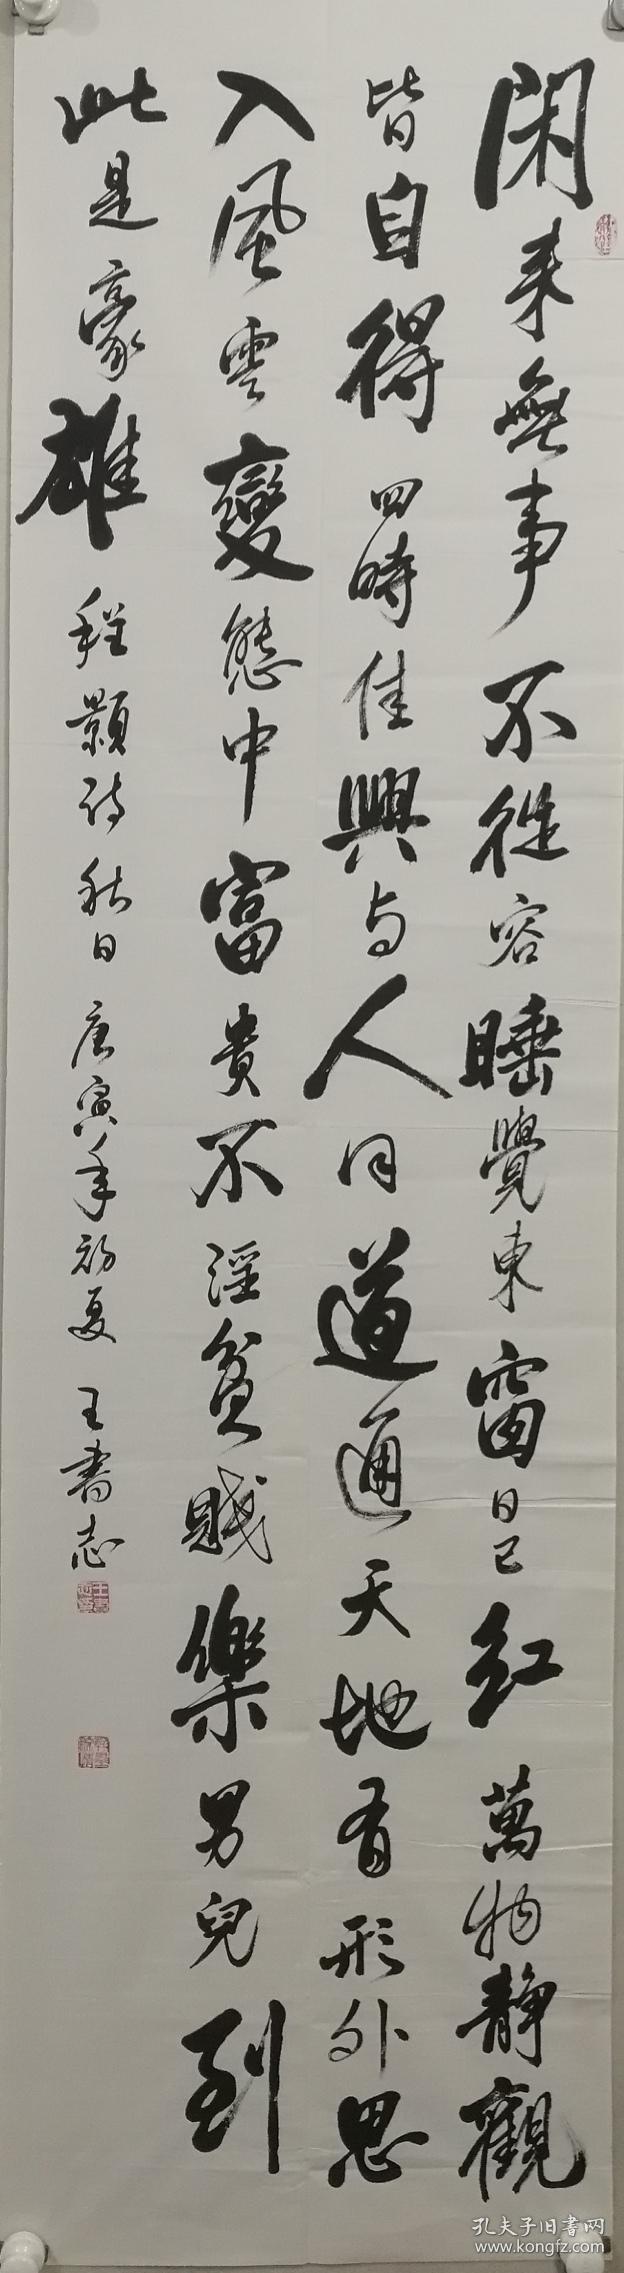 閑来無事不從容睡覺東窗日已紅萬物靜觀
皆自得四時佳興与人同道通天地有形外思
入風雲變態中富貴不淫貧賤樂男兒到
此是豪雄程顥诗秋日庚寅年初夏王書志
孔夫子旧書网
www.kongfz.com